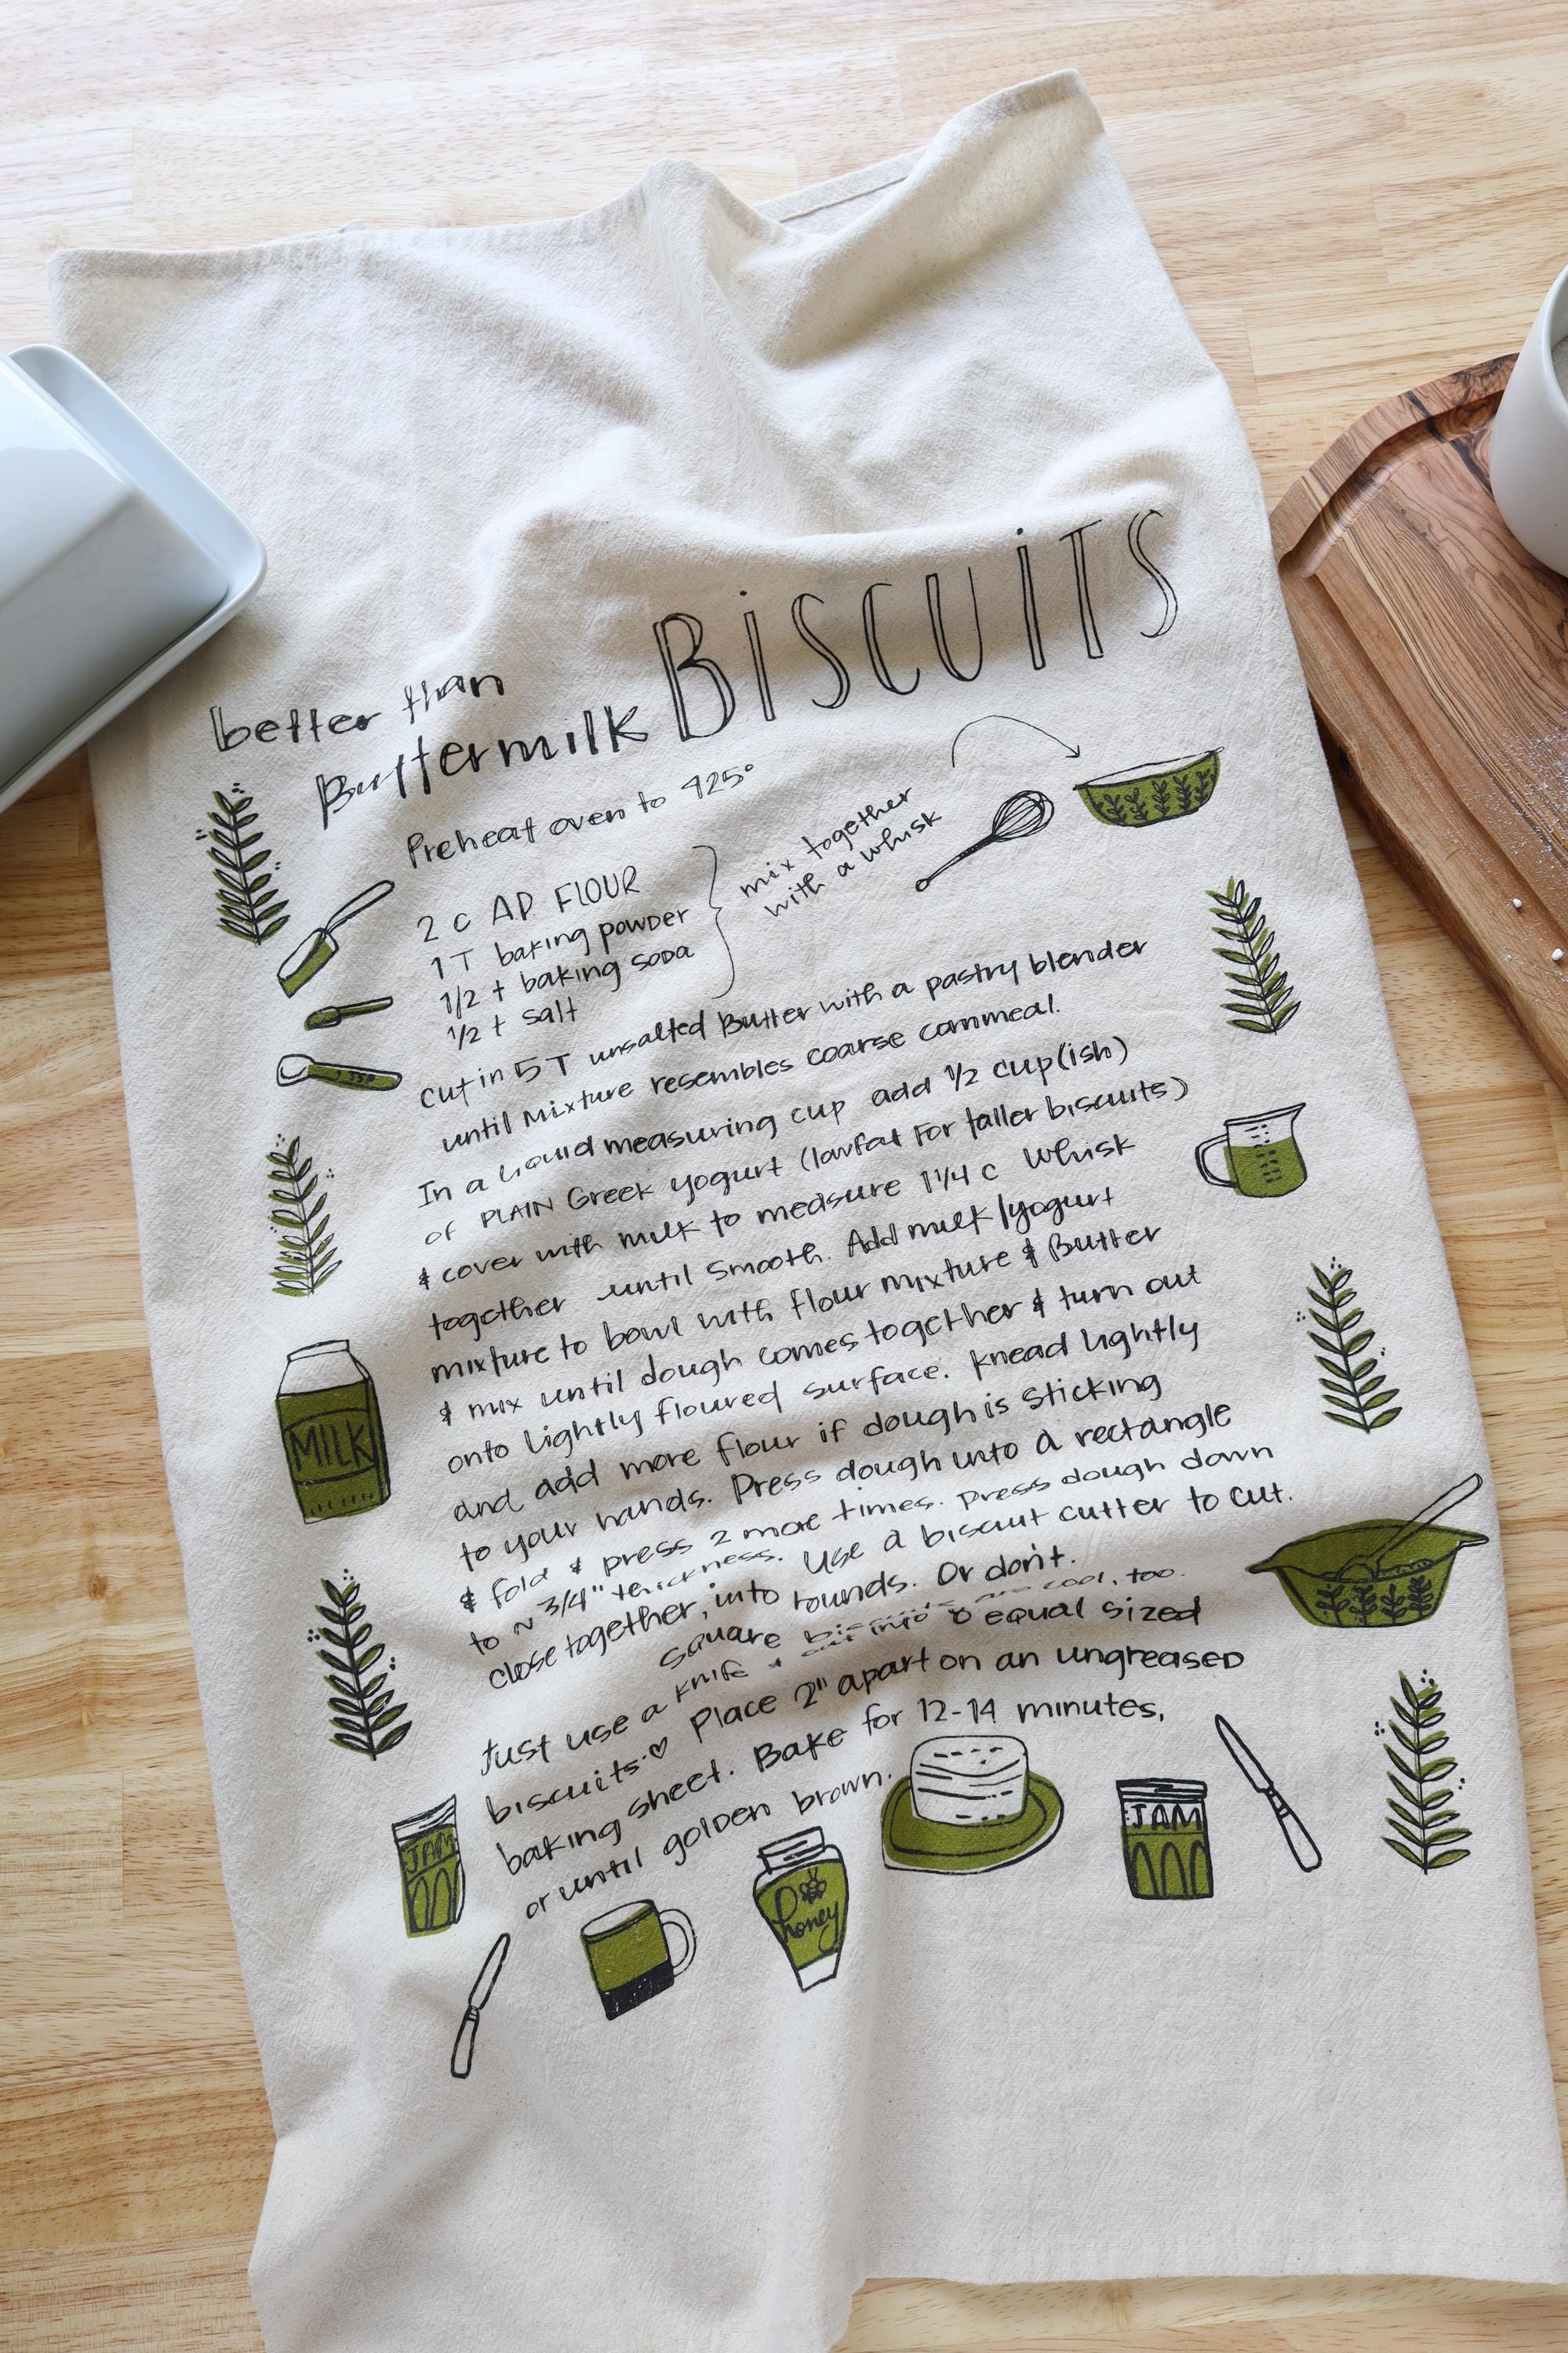 better than
Buttermilk BiSCUiTS
Preheat oven to 425°
2 C A.P. FLOUR
1 T baking powder
1/2 t baking soda
1/2 t salt
mix together
with a whisk
cut in 5 T unsalted Butter with a pastry blender
until mixture resembles coarse cornmeal.
In a liquid measuring cup add 1/2 cup(ish)
of PLAIN Greek yogurt (lowfat for taller biscuits)
& cover with milk to measure 1 1/4 c whisk
together until smooth. Add milk/yogurt
mixture to bowl with flour mixture & Butter
& mix until dough comes together & turn out
onto lightly floured surface. Knead lightly
and add more flour if dough is sticking
to your hands. Press dough into a rectangle
& fold & press 2 more times. press dough down
to ~ 3/4" thickness. Use a biscuit cutter to cut.
close together, into rounds. Or don't.
square biscuits are cool, too.
Just use a knife & cut into 8 equal sized
biscuits.♡ Place 2" apart on an ungreased
baking sheet. Bake for 12-14 minutes,
or until golden brown.
MILK
JAM
honey
JAM